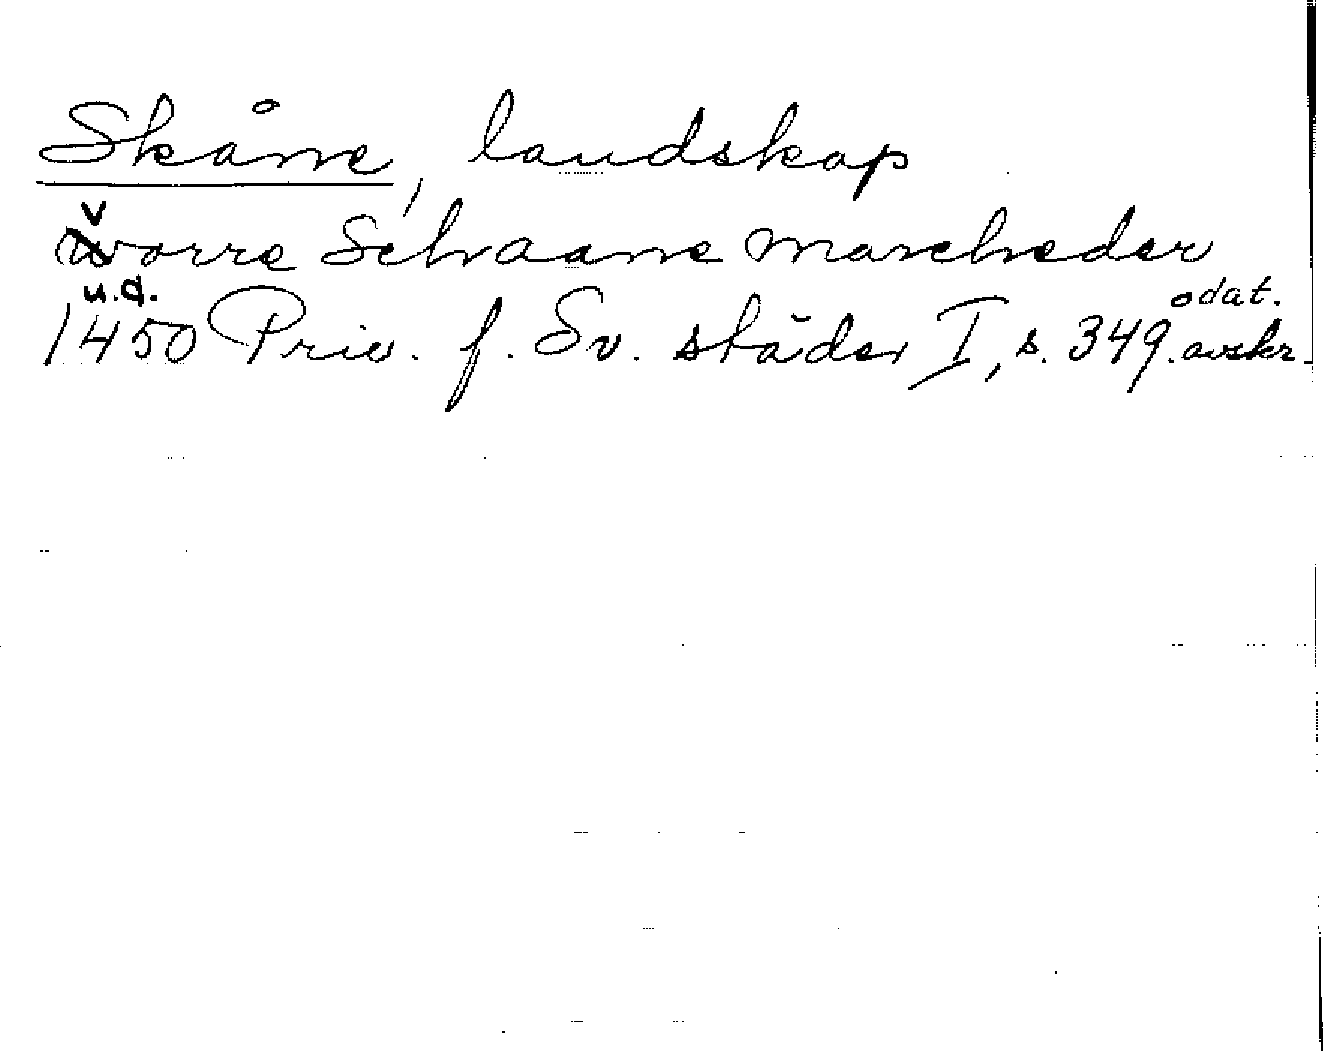 Skåne, landskap
v
vorre Schaane marcheder
u.d.
1450 Priv. f. Sv. städer I, s. 349. odat. avskr.